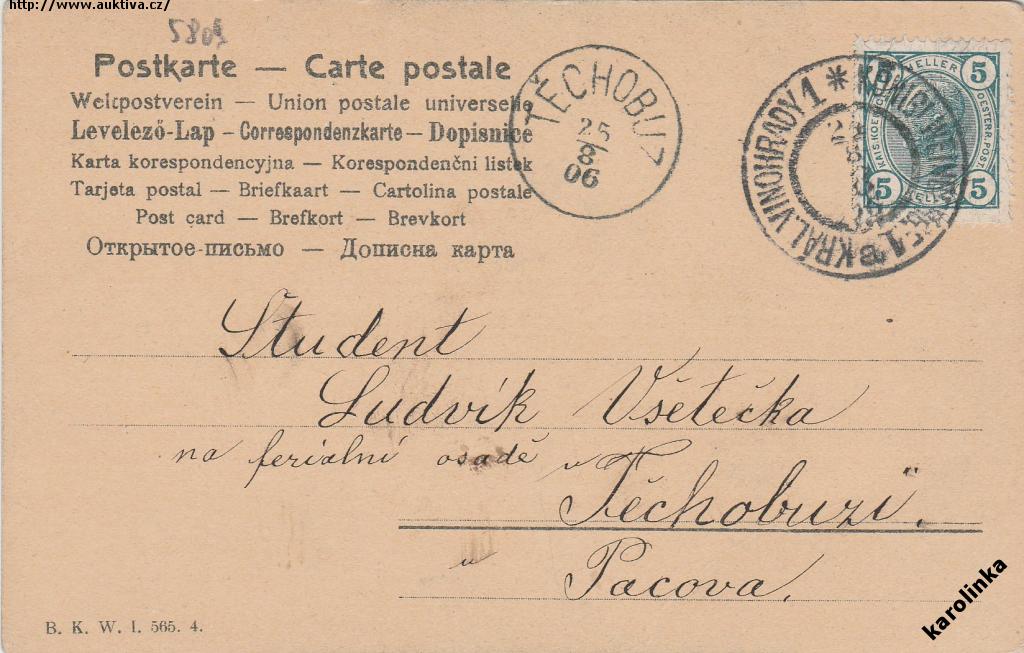 http://www.auktiva.cz/
5809
Postkarte — Carte postale
Weltpostverein — Union postale universelle
Levelező-Lap – Correspondenzkarte — Dopisnice
Karta korespondencyjna — Korespondenční listek
Tarjeta postal — Briefkaart — Cartolina postale
Post card — Brefkort — Brevkort
Открытое-письмо — Дописна карта
TĚCHOBUZ
25
8
06
KRÁL. VINOHRADY 1
5 HELLER 5
KAIS. KOE OESTERR. POST
5 HELLER 5
Student
Ludvík Všetečka
na feriální osadě v
Těchobuzi.
u Pacova.
B. K. W. I. 565. 4.
karolinka